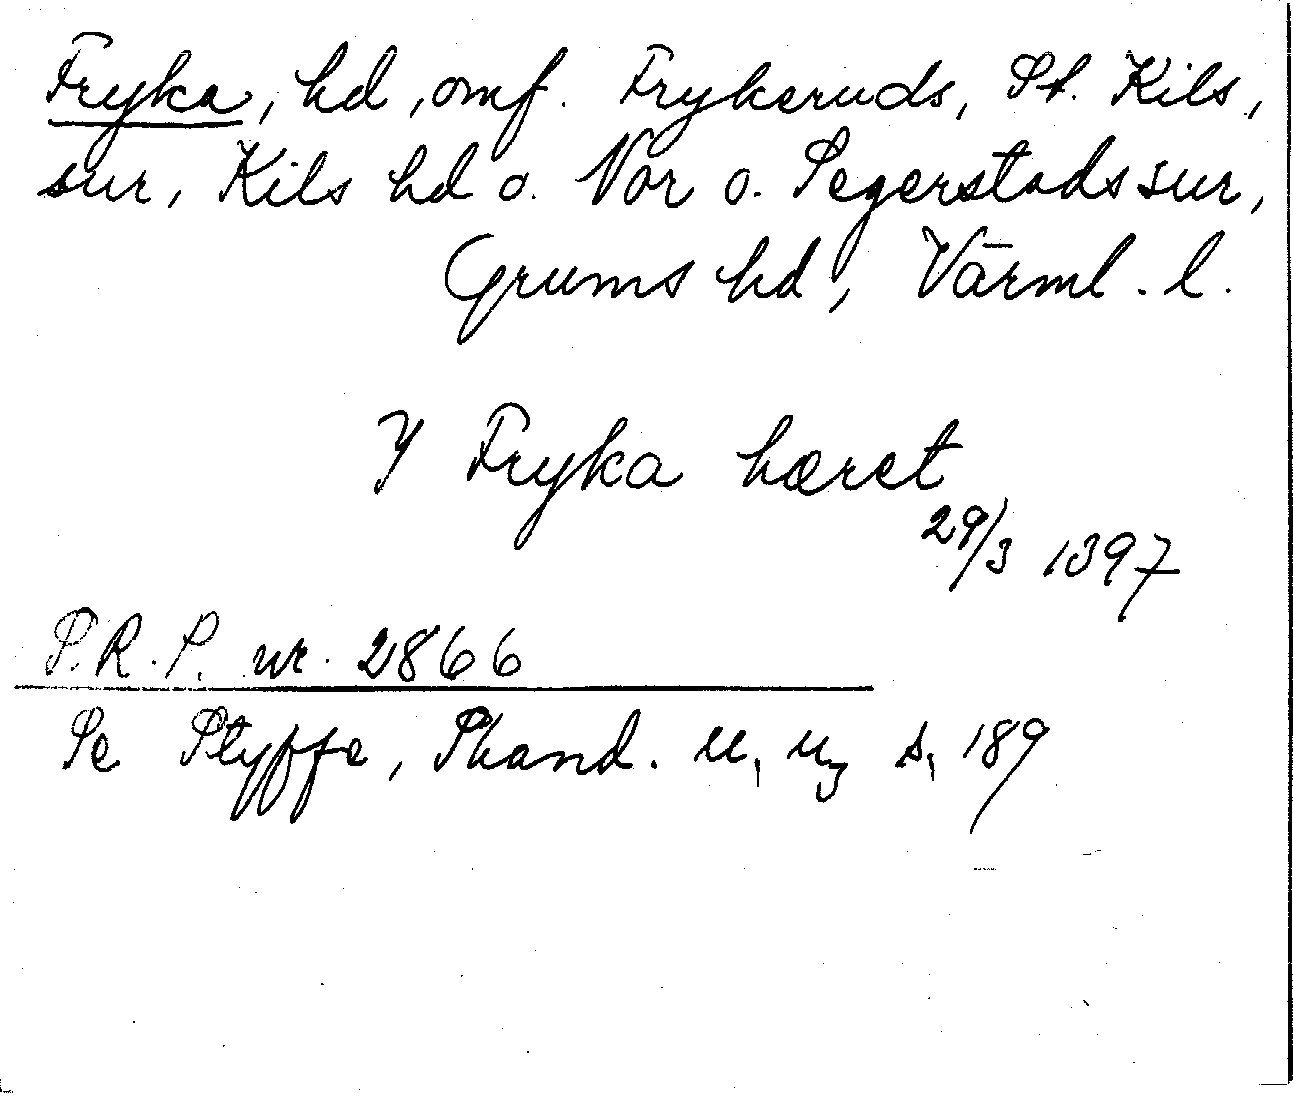 Fryka, hd, omf. Frykeruds, St. Kils,
snr, Kils hd o. Nor o. Segerstads snr,
Grums hd, Värml. l.
Y Fryka hæret
29/3 1397
S.R.P. nr. 2866
Se Styffe, Skand. u, u3 s, 189